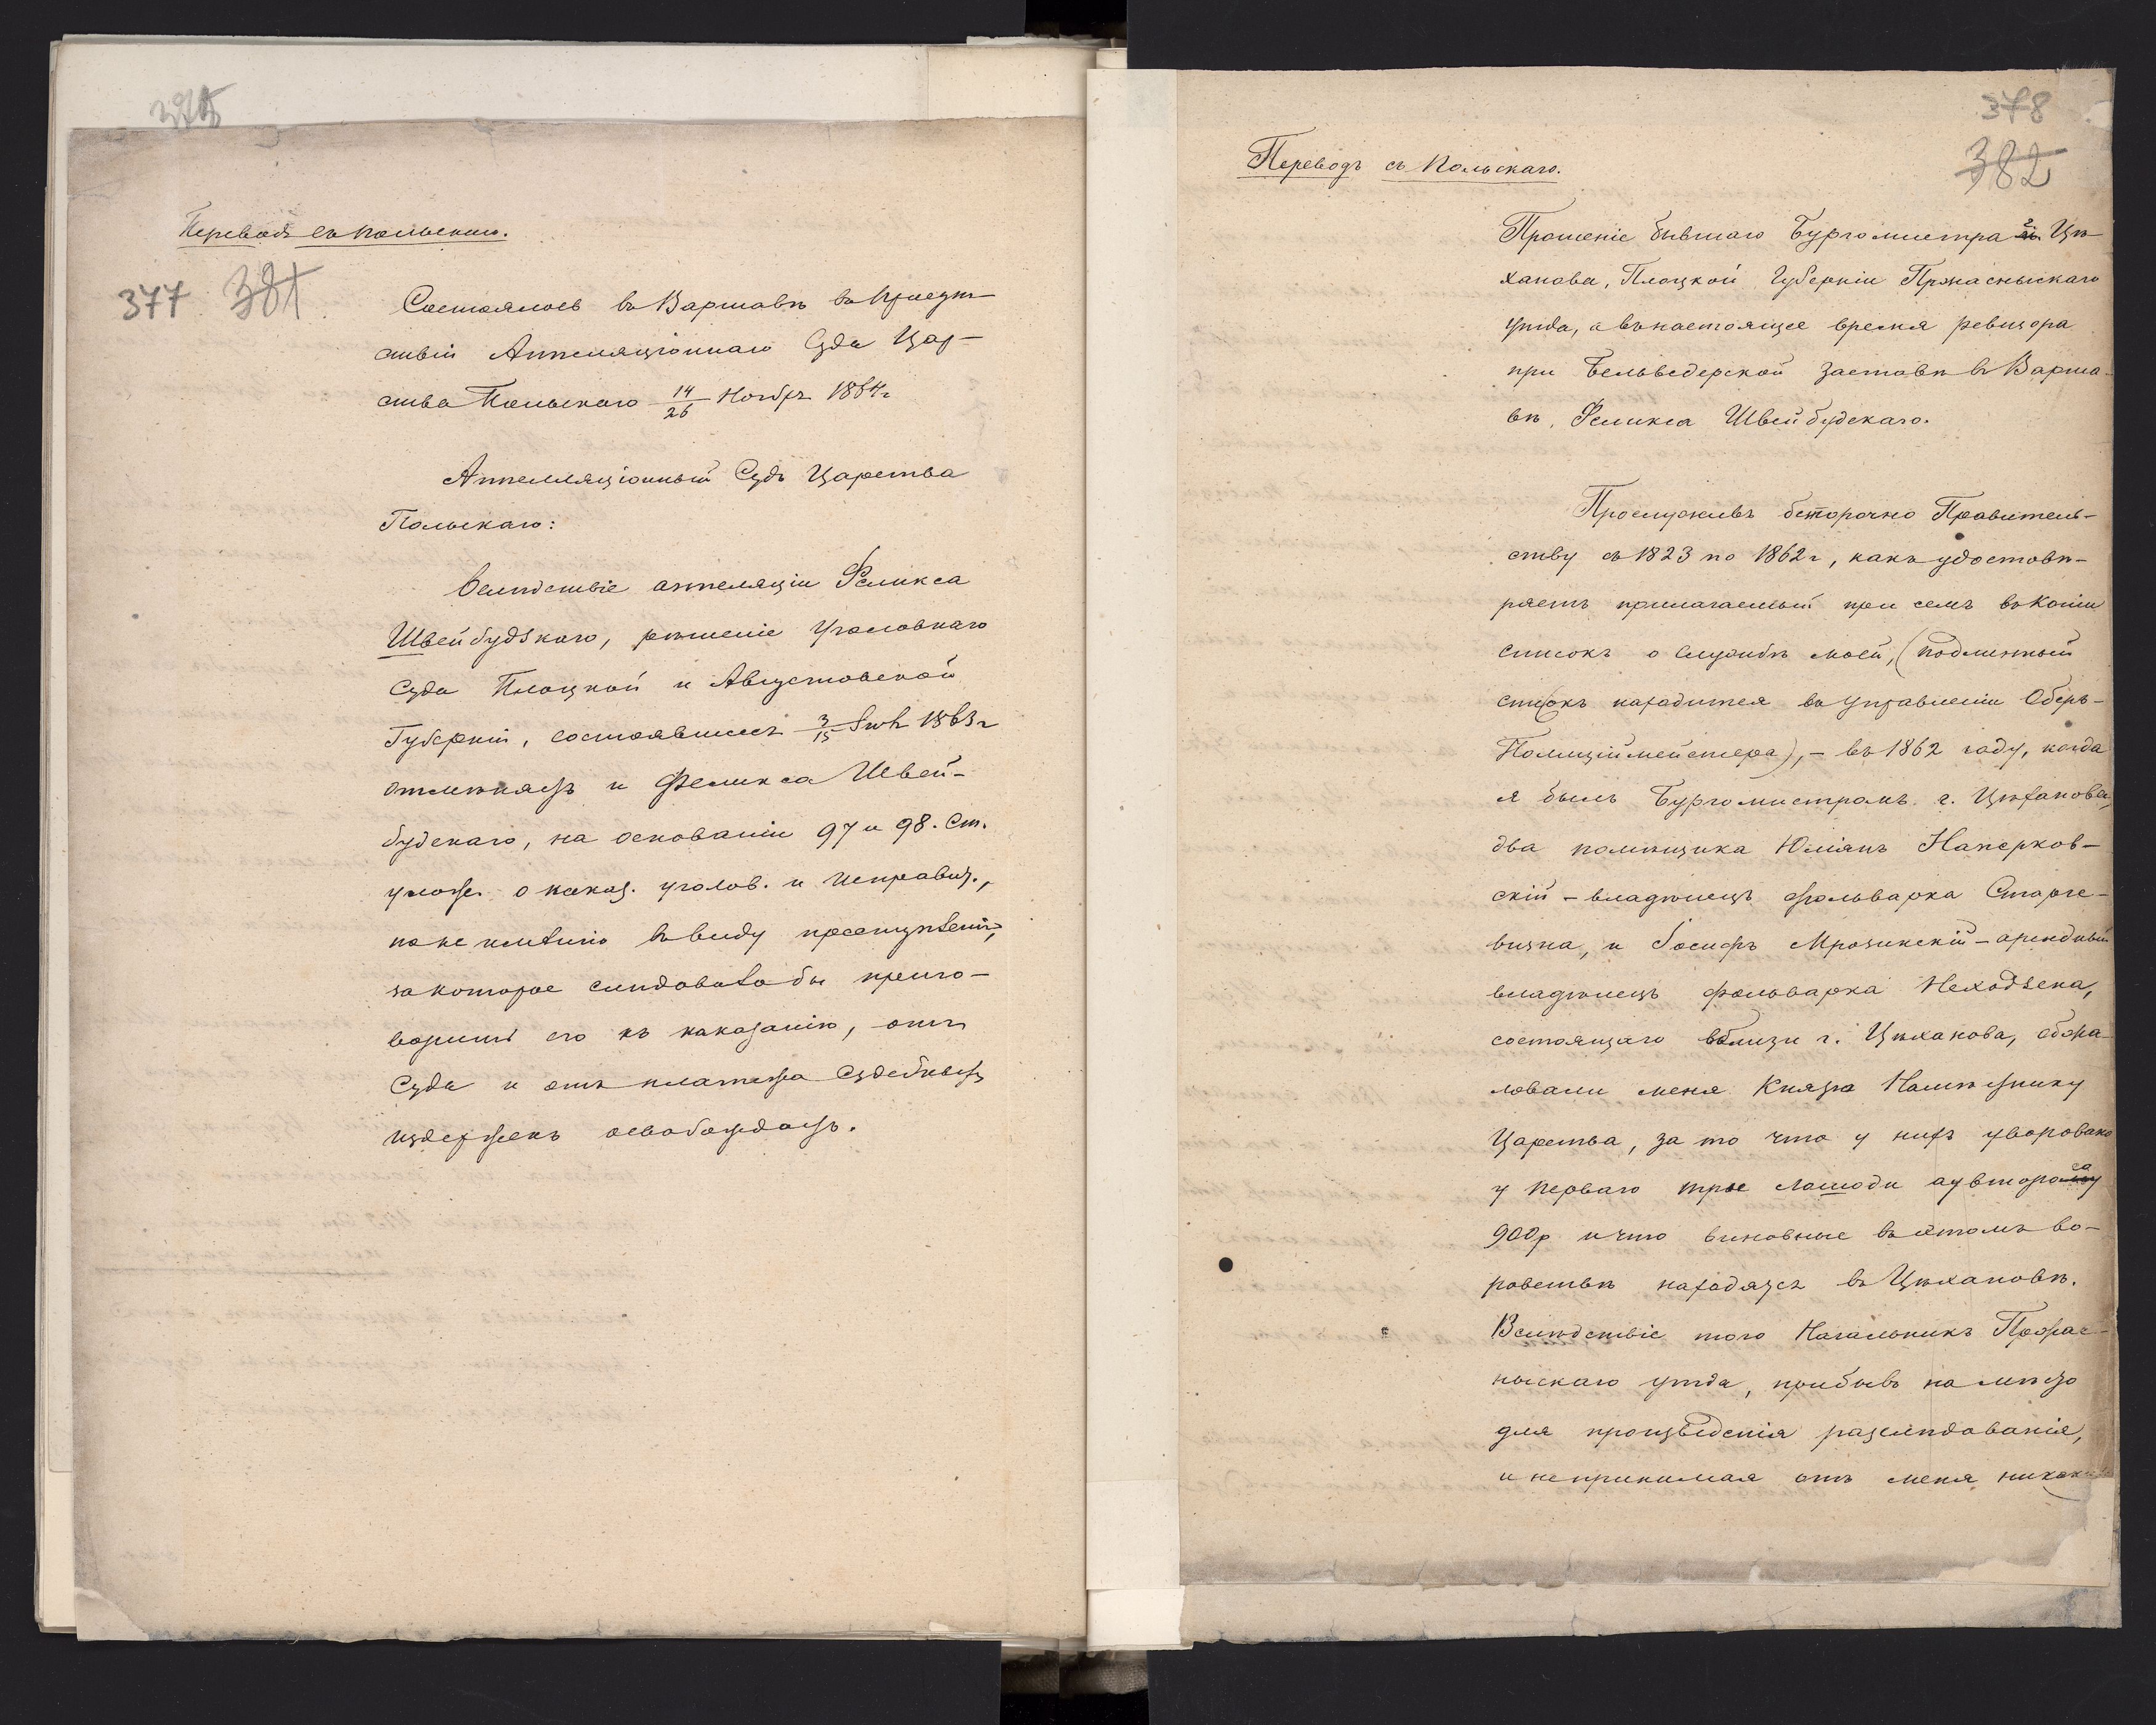 Переводъ съ польскаго.
377 381
Состоялось въ Варшавѣ въ присут-
ствіи Аппеляціоннаго Суда Цар-
ства Польскаго 14/26 Ноябр. 1864 г
Аппелляціонный Судъ Царства
Польскаго:
Вслѣдствіе аппеляціи Феликса
Швейбудзкаго, рѣшеніе Уголовнаго
Суда Плоцкой и Августовской
Губерній, состоявшееся 3/15 1863 г
отмѣняетъ и Феликса Швей-
будскаго, на основаніи 97 и 98. Ст.
улож. о наказ. уголов. и исправит.,
по не имѣнію въ виду преступленія,
за которое слѣдовало бы приго-
ворить его къ наказанію, отъ
Суда и отъ платежа Судебныхъ
издержекъ освобождаетъ.
378
382
Переводъ съ Польскаго.
Прошеніе бывшаго Бургомистра г. Цѣ-
ханова, Плоцкой Губерніи Пржаснышскаго
уѣзда, а въ настоящее время ревизора
при Бельведерской заставѣ въ Варша-
вѣ, Феликса Швейбудскаго.
Прослуживъ безпорочно Правитель-
ству съ 1823 по 1862 г, какъ удостовѣ-
ряетъ прилагаемый при семъ въ копіи
списокъ о службѣ моей, (подлинный
списокъ находится въ управленіи Оберъ-
Полиціймейстера), - въ 1862 году, когда
я былъ Бургомистромъ г. Цѣханова,
два помѣщика Юліянъ Наперков-
скій - владѣлецъ фольварка Старге-
визна, и Іосифъ Мрозинскій - арендный
владѣлецъ фольварка Неходзена,
состоящаго вблизи г. Цѣханова, обжа-
ловали меня Князю Намѣстнику
Царства, за то что у нихъ уворовано
у перваго трое лошади а у втораго
900 р и что виновные въ этомъ во-
ровствѣ находятся въ Цѣхановѣ.
Вслѣдствіе того Начальникъ Пржас-
нышскаго уѣзда, прибывъ на мѣсто
для произведенія разслѣдованія,
и непринимая отъ меня никаки